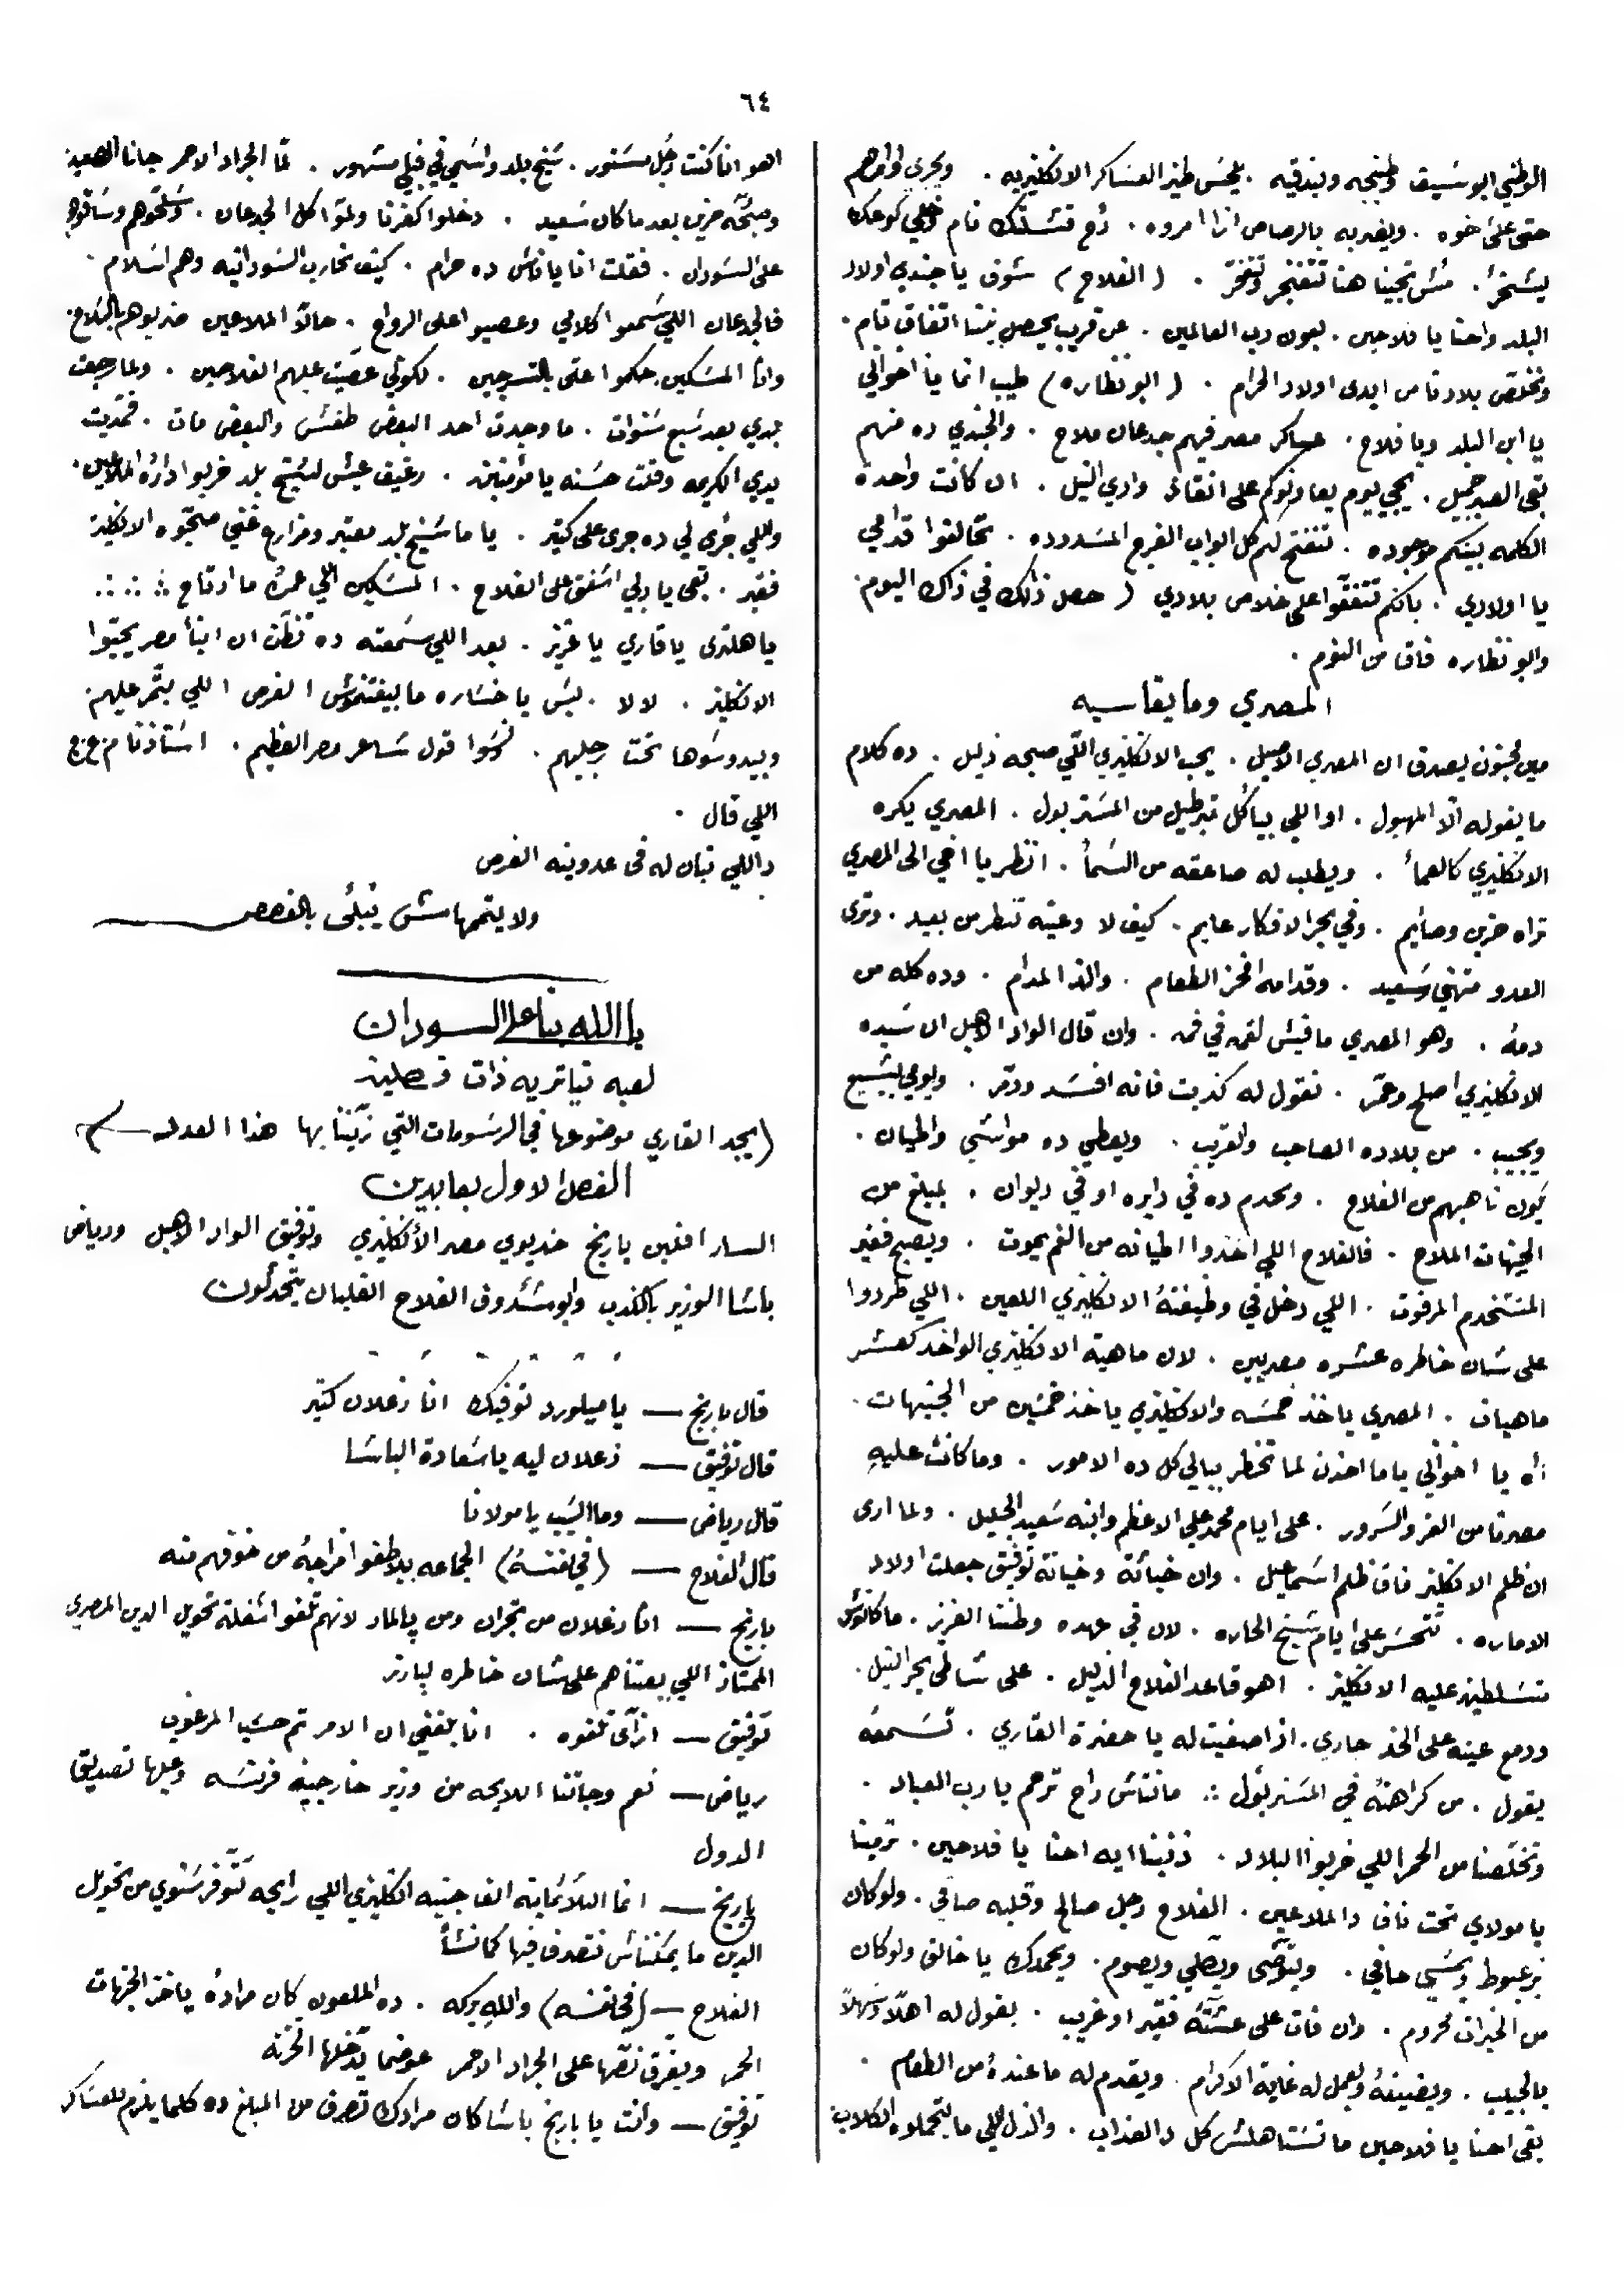 ٦٤
الوطني ابو سيف وطبنجه وبندقيه . يلحس طيز العساكر الانكليزيه . ويجري اوامرهم
حتى على اخوه . ويضربه بالرصاص اذا امروه . رح فتستك نام وخلي كوعك
يشخر . مش تجينا هنا تتفنجر وتفخر . ( الفلاح ) شوف يا جندي اولاد
البلد واحنا يا فلاحين . بعون رب العالمين . عن قريب يحصل بيننا اتفاق تام .
ونخلص بلادنا من ايدي اولاد الحرام . ( ابو نظاره ) طيب انما يا اخواني
يا ابن البلد ويا فلاح . عساكر مصر فيهم جدعان ملاح . والجندي ده منهم
بقى الصبر جميل . يجي يوم يعاونوكم على انقاذ وادي النيل . ان كانت واحدة
الكلمه بينكم موجوده . تنفتح لهم كل ابواب الفرج المسدوده . تحالفوا قدامي
يا اولادي . بانكم تتفقوا على خلاص بلادي ( حصل ذلك في ذاك اليوم
وابو نظاره فاق من النوم .
المصري وما يقاسيه
مين مجنون يصدق ان المصري الاصيل . يحب الانكليزي اللي صبحه ذليل . ده كلام
ما يقوله الا المهبول . او اللي بيأكل تبرطيل من المستر بول . المصري يكره
الانكليزي كالعمأ . ويطلب له صاعقه من السمأ . انظر يا اخي الى المصري
تراه حزين وصايم . وفي بحر الافكار عايم . كيف لا وعينه تنظر من بعيد . وترى
العدو متهني وسعيد . وقدامه افخر الطعام . والذ المدام . وده كله من
دمه . وهو المصري ما فيش لقمه في فمه . وان قال الواد الاهبل ان سيده
الانكليزي اصلح وعمر . نقول له كذبت فانه افسد ودمر . ويوم بيشيع
ويجيب . من بلاده الصاحب والقريب . ويعطي ده مواشي واطيان .
يكون ناهبهم من الفلاح . ويخدم ده في دايره او في ديوان . بمبلغ من
الجنيهات الملاح . فالفلاح اللي اخذوا اطيانه من الغم يموت . ويصبح فقير
المستخدم المرفوت . اللي دخل في وظيفته الانكليزي اللعين . اللي طردوا
على شان خاطره عشره مصريين . لان ماهية الانكليزي الواحد كعشر
ماهيات . المصري ياخذ خمسه والانكليزي ياخذ خمسين من الجنيهات .
أه يا اخواني ياما احزن لما تخطر ببالي كل ده الامور . وما كانت عليه
مصرنا من العز والسرور . على ايام محمد علي الاعظم وابنه سعيد الجليل . ولما ارى
ان ظلم الانكليز فاق ظلم اسماعيل . وان خباثة وخيانة توفيق جعلت اولاد
الاماره . تتحسر على ايام شيخ الحاره . لان في عهده وطننا العزيز . ما كانوش
متسلطين عليه الانكليز . اهو قاعد الفلاح الذليل . على شاطي بحر النيل .
ودمع عينه على الخد جاري . اذا صغيت له يا حضرة القاري . تسمعه
يقول . من كراهته في المستر بول :. ما نتاش راح ترحم يا رب العباد .
وتخلصنا من الحمر اللي خربوا البلاد . ذنبنا ايه احنا يا فلاحين . ترمينا
يا مولاي تحت ناف دا الملاعين . الفلاح رجل صالح وقلبه صافي . ولو كان
بزعبوط ويمشي حافي . ويتوضى ويصلي ويصوم . ويحمدك يا خالق ولو كان
من الخيرات محروم . وان فات على عشته فقير او غريب . يقول له اهلاً وسهلاً
بالحبيب . ويضيفه ويعمل له غاية الاكرام . ويقدم له ما عنده من الطعام .
بقى احنا يا فلاحين ما نستاهلش كل دا العذاب . والذل اللي ما يتحملوه الكلاب
اهو انا كنت رجل مستور . شيخ بلد واسمي في قبلي مشهور . لما الجراد الاحمر جانا الصعيد
وصبحه حزين بعد ما كان سعيد . دخلوا كفرنا ولموا كل الجدعان . وسلحوهم وساقوهم
على السودان . فقلت انا يا ناس ده حرام . كيف نحارب السودانيه وهم اسلام .
فالجدعان اللي سمعوا كلامي وعصيوا على الرواح . حالاً الملاعين ضربوهم بالسلاح
وانا المسكين حكموا علي بالتسجين . لكوني عصيت عليهم الفلاحين . ولما رجعت
بلدي بعد سبع سنوات . ما وجدت احد البعض طفش والبعض مات . فمديت
يدي الكريمه وقلت حسنه يا مؤمنين . رغيف عيش لشيخ بلد خربوا داره الملاعين .
واللي جرى لي ده جرى على كتير . ياما شيخ بلد معتبر ومزارع غني صبحوه الانكليز
فقير . بقى يا ربي اشفق على الفلاح . المسكين اللي عمره ما ارتاح :. :. :.
يا هلترى يا قاري يا عزيز . بعد اللي سمعته ده تظن ان ابنأ مصر يحبوا
الانكليز . لا لا . بس يا خساره ما بيغتنموش الفرص اللي بتمر عليهم
وبيدوسوها تحت رجليهم . ونسوا قول شاعر مصر العظيم . استاذنا م ع ج
اللي قال .
واللي تبان له في عدوينه الفرص
ولا يتمهاش يبلى بالغصص
يا الله بنا على السودان
لعبه تياتريه ذات فصلين
( يجد القاري موضوعها في الرسومات التي زيننا بها هذا العدد )
الفصل الاول بعابدين
السار افلين بارنج خديوي مصر الأنكليزي وتوفيق الواد الاهبل ورياض
باشا الوزير بالكدب وابو شدوف الفلاح الغلبان يتحدثون
قال بارنج — يا ميلورد توفيك انا زعلان كتير
قال توفيق — زعلان ليه يا سعادة الباشا
قال رياض — وما السبب يا مولانا
قال الفلاح — ( في نفسه ) الجماعه بيلاطفوا مزاجه من خوفهم منه
بارنج — انا زعلان من تجران ومن پالمار لانهم تلفوا شغلة تحويل الدين المصري
الممتاز اللي بعتناهم على شان خاطره لپاريز
توفيق — ازأي تلفوه . انا بلغني ان الامر تم حسب المرغوب
رياض — نعم وجاتنا اللايحه من وزير خارجية فرنسه وعليها تصديق
الدول
بارنج — انما الثلاثماية الف جنيه انكليزي اللي رايحه تتوفر سنوي من تحويل
الدين ما يمكنناش نتصرف فيها كما نشأ
الفلاح — ( في نفسه ) والله بركه . ده الملعون كان مراده ياخذ الجنيهات
الحمر ويفرق نصها على الجراد الاحمر عوضما يدخلها الخزنه
توفيق — وانت يا بارنج باشا كان مرادك تصرف من المبلغ ده كلما يلزم للعساكر